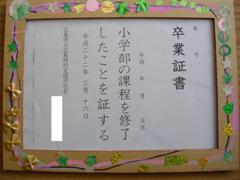 卒業証書
第　号
平成　年　月　日生
小学部の課程を修了
したことを証する
平成二十二年三月十六日